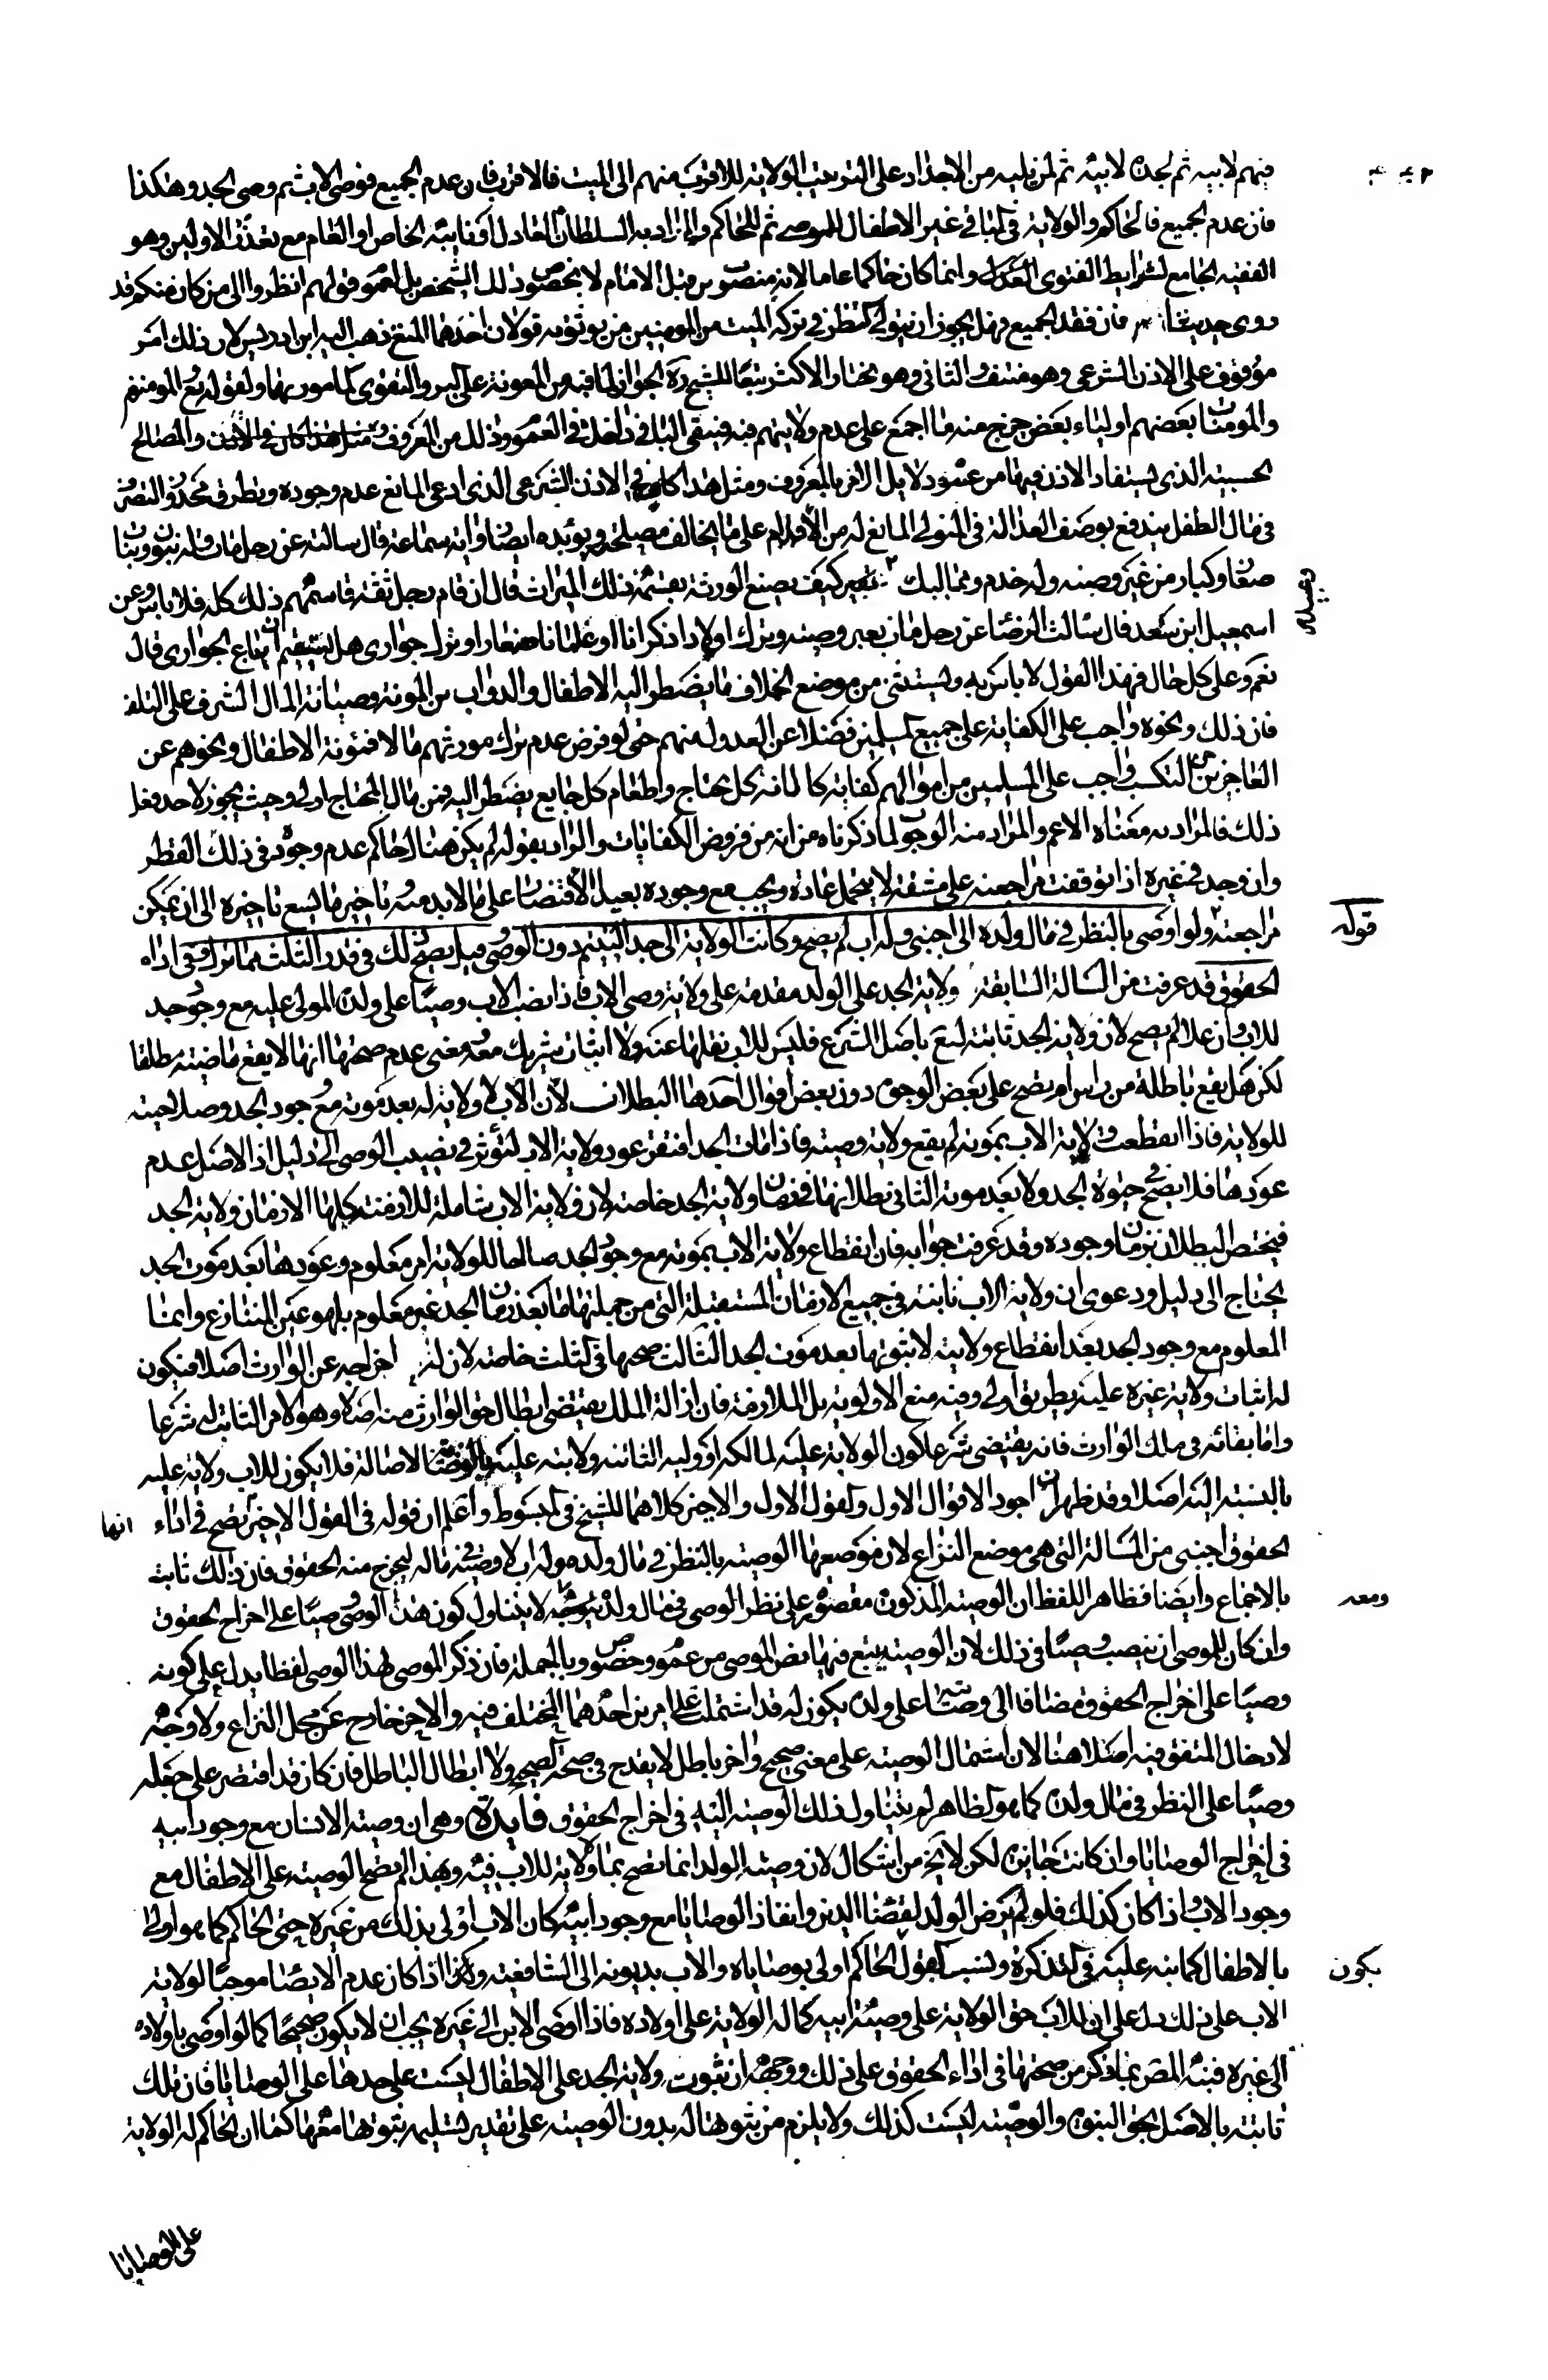 فيهم لابيه ثم لجده لابيه ثم لمن يليه من الاجداد على الترتيب الولاية للاقرب منهم الى الميت فالاقرب فان عدم الجميع فوصى الاب ثم وصى الجد وهكذا
فان عدم الجميع فالحاكم والولاية في الباقي غير الاطفال للموصى ثم للحاكم والمراد به السلطان العادل او نايبه الخاص او العام مع تعذر الاولين وهو
الفقيه الجامع لشرايط الفتوى العدل وانما كان حاكما عاما لانه منصوب من قبل الامام لا بخصوص ذلك الشخص بل بعموم قولهم انظروا الى من كان منكم قد
روى حديثنا فان فقد الجميع فهل يجوز ان يتولى النظر في تركة الميت من المومنين من يوثق به قولان احدهما المنع ذهب اليه ابن ادريس لان ذلك امر
موقوف على الاذن الشرعى وهو منتف والثانى وهو مختار الاكثر تبعا للشيخ ره الجواز لما فيه من المعونة على البر والتقوى المامور بهما ولقوله تع المومنون
والمومنات بعضهم اولياء بعض خرج منه ما اجمع على عدم ولايتهم فيه فيبقى الباقي داخلا في العموم وذلك من المعروف والمصالح
الحسبية الذى يستفاد الاذن فيها من عموم دلايل الامر بالمعروف ومثل هذا كاف في الاذن الشرعى الذى ادعى المانع عدم وجوده وتطرق محذور التصرف
في مال الطفل يندفع بوصف العدالة في المتولى المانع له من الاقدام على ما يخالف مصلحته ويؤيده ايضا رواية سماعة قال سالته عن رجل مات وله بنون وبنات
صغار وكبار من غير وصية وله خدم ومماليك كيف يصنع الورثة بقسمة ذلك الميراث قال ان قام رجل ثقة قاسمهم ذلك كله فلا باس وعن
اسمعيل ابن سعد قال سالت الرضا عن رجل مات بغير وصية وترك اولادا ذكرانا او غلمانا صغارا وترك جوارى هل يستقيم ان تباع الجوارى قال
نعم وعلى كل حال فهذا القول لا باس به ويستثنى من موضع الخلاف ما يضطر اليه الاطفال والدواب من المونة وصيانة المال المشرف على التلف
فان ذلك ونحوه واجب على الكفاية على جميع المسلمين فضلا عن العدول منهم حتى لو فرض عدم ترك مورثهم مالا فمئونة الاطفال ونحوهم من
العاجزين عن التكسب واجب على المسلمين من اموالهم كفاية كاعانة كل محتاج واطعام كل جايع يضطر اليه فمن مال المحتاج اولى وحيث يجوز لاحد فعل
ذلك فالمراد به معناه الاعم والمراد منه الوجوب لما ذكرناه من انه من فروض الكفايات والمراد بقوله لم يكن هناك حاكم عدم وجوده في ذلك القطر
وان وجد في غيره اذا توقفت مراجعته على مشقة لا يتحمل عادة ويجب مع وجوده بعيدا الاقتصار على ما لابد منه وتاخير ما يسع تاخيره الى ان يمكن
مراجعته ولو اوصى بالنظر في مال ولده الى اجنبى وله اب لم يصح وكانت الولاية الى جد اليتيم دون الوصى وقيل يصح ذلك في قدر الثلث مما ترك وفى اداء
الحقوق قد عرفت من المسالة السابقة ولاية الجد على الولد مقدمة على ولاية وصى الاب فاذا نصب الاب وصيا على ولده المولى عليه مع وجود جد
للاب وان علا لم يصح لان ولاية الجد ثابتة له تع باصل الشرع فليس للاب نقلها عنه ولا اثبات شريك معه ومعنى عدم صحتها انها لا يقع ماضية مطلقا
لكن هل يقع باطلة من راس ام يصح على بعض الوجوه دون بعض اقوال احدها البطلان لان الاب لا ولاية له بعد موته مع وجود الجد وصلاحيته
للولاية فاذا انقطعت ولاية الاب بموته لم يقع ولاية وصيه فاذا مات الجد افتقر عود ولاية الاب لتؤثر في نصب الوصى الى دليل اذ الاصل عدم
عودها فلا يصح في حيوة الجد ولا بعد موته الثانى بطلانها في زمان ولاية الجد خاصة لان ولاية الاب شاملة للازمنة كلها الا زمان ولاية الجد
فيختص البطلان بزمان وجوده وقد عرفت جوابه فان انقطاع ولاية الاب بموته مع وجود الجد صالحا للولاية امر معلوم وعودها بعد موت الجد
يحتاج الى دليل ودعوى ان ولاية الاب ثابتة في جميع الازمان المستقبلة التى من جملتها ما بعد زمان الجد غير معلوم بل هو عين المتنازع وانما
المعلوم مع وجود الجد بعد انقطاع ولايته لا ثبوتها بعد موت الجد الثالث صحتها في الثلث خاصة لان له اخراجه عن الوارث اصلا فيكون
له اثبات ولاية غيره عليه بطريق اولى وفيه منع الاولوية بل الملازمة فان ازالة الملك يقتضى ابطال حق الوارث منه اصلا وهو الامر الثابت له شرعا
واما بقائه في ملك الوارث فانه يقتضى شرعا كون الولاية عليه لمالكه او وليه الثابته ولايته عليه بالاصالة فلا يكون للاب ولاية عليه
بالنسبة اليه اصلا وقد ظهر ان اجود الاقوال الاول والقول الاول والاخير كلاهما للشيخ في المبسوط واعلم ان قوله في القول الاخير تصح في اداء انها
الحقوق اجنبى من المسالة التى هى موضع النزاع لان موضعها الوصية بالنظر في مال ولده وله اب لا وصية في ماله ليخرج منه الحقوق فان ذلك ثابت
بالاجماع وايضا فظاهر اللفظ ان الوصية المذكورة مقصورة على نظر الوصى في مال ولده لا يتناول كون هذا الوصى وصيا على اخراج الحقوق ومعه
وان كان للموصى ان ينصب وصيا في ذلك لان الوصية يتبع فيها نص الموصى من عموم وخصوص وبالجملة فان ذكر الموصى لهذا الوصى لفظا يدل على كونه
وصيا على اخراج الحقوق مضافا الى وصيته على ولده يكون له قد اشتملت على امرين احدهما المختلف فيه والاخر خارج عن محل النزاع ولا وجه
لادخال المتفق فيه اصلا هنا لان اشتمال الوصية على معنى صحيح واخر باطل لا يقدح في صحة الصحيح ولا ابطال الباطل فان كان قد اقتصر على جعله
وصيا على النظر في مال ولده كما هو الظاهر لم يتناول ذلك الوصية اليه في اخراج الحقوق فايدة وهى ان وصية الانسان مع وجود ابيه
في اخراج الوصايا وان كانت جايزة لكن لا يخ من اشكال لان وصية الولد انما تصح بما لا ولاية للاب فيه وبهذا لم يصح الوصية على الاطفال مع
وجود الاب واذا كان كذلك فلو لم يوص الولد لقضاء الدين وانفاذ الوصايا مع وجود ابيه كان الاب اولى بذلك من غيره حتى الحاكم كما هو اولى
بالاطفال كما نبه عليه في التذكرة ونسب القول بكون الحاكم اولى بوصاياه والاب بديونه الى الشافعية وكذا اذا كان عدم الايصاء موجبا لولاية
الاب على ذلك دل على ان للاب حق الولاية على وصية ابيه كما له الولاية على اولاده فاذا اوصى الابن الى غيره يجب ان لا يكون صحيحا كما لو اوصى باولاده
الى غيره فنبه المصر بما ذكر من صحتها في اداء الحقوق على ذلك ووجهه ان ثبوت ولاية الجد على الاطفال ليست على حدها على الوصايا فان تلك
ثابتة بالاصل بحق البنوة والوصية ليست كذلك ولا يلزم من ثبوتها له بدون الوصية على تقدير تسليمه ثبوتها معها كما ان الحاكم له الولاية
على الوصايا